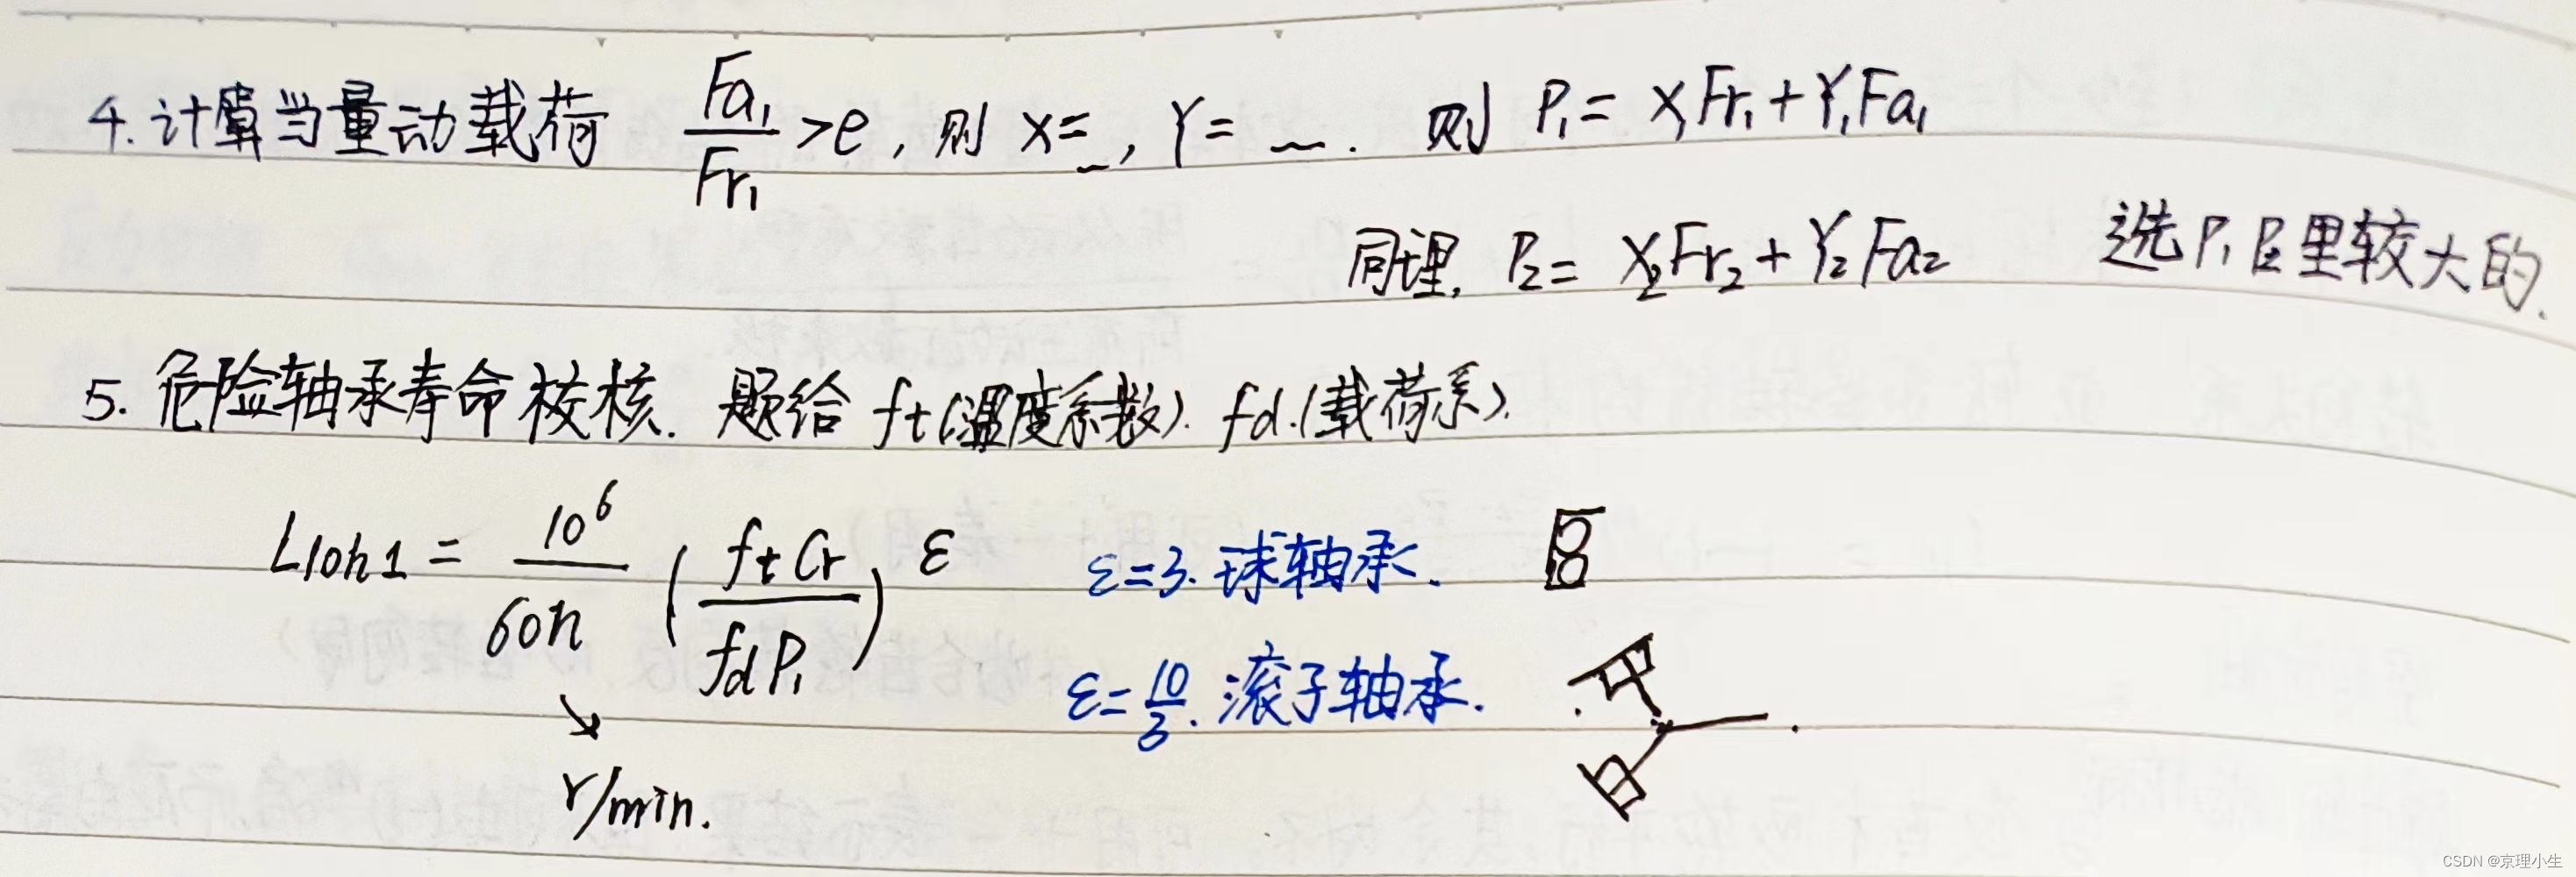 4. 计算当量动载荷 Fa₁/Fr₁ >e, 则 X=_, Y=_. 则 P₁= X₁Fr₁+Y₁Fa₁
同理, P₂= X₂Fr₂+Y₂Fa₂ 选P₁P₂里较大的.
5. 危险轴承寿命校核. 题给 ft(温度系数). fd.(载荷系).
L10h1 = 10⁶/60n (ftCr/fdP₁)^ε ε=3. 球轴承.
ε=10/3. 滚子轴承.
r/min.
CSDN @京理小生